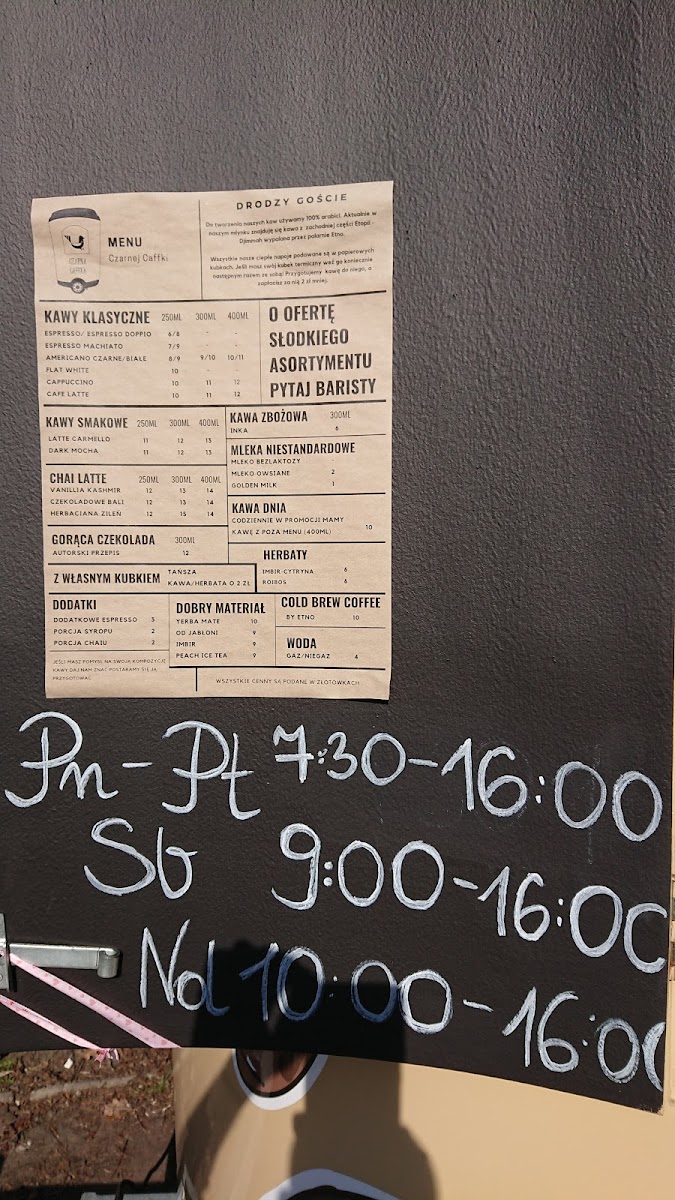 MENU
Czarnej Caffki
DRODZY GOŚCIE
Do tworzenia naszych kaw używamy 100% arabici. Aktualnie w
naszym młynku znajduję się kawa z zachodniej części Etopii -
Djimmah wypalona przez palarnie Etno.
Wszystkie nasze ciepłe napoje podawane są w papierowych
kubkach. Jeśli masz swój kubek termiczny weź go koniecznie
następnym razem ze sobą! Przygotujemy kawę do niego, a
zapłacisz za nią 2 zł mniej.
KAWY KLASYCZNE 250ML 300ML 400ML
ESPRESSO/ ESPRESSO DOPPIO 6/8 - -
ESPRESSO MACHIATO 7/9 - -
AMERICANO CZARNE/BIAŁE 8/9 9/10 10/11
FLAT WHITE 10 - -
CAPPUCCINO 10 11 12
CAFE LATTE 10 11 12
O OFERTĘ
SŁODKIEGO
ASORTYMENTU
PYTAJ BARISTY
KAWY SMAKOWE 250ML 300ML 400ML
LATTE CARMELLO 11 12 13
DARK MOCHA 11 12 13
KAWA ZBOŻOWA 300ML
INKA 6
MLEKA NIESTANDARDOWE
MLEKO BEZLAKTOZY
MLEKO OWSIANE 2
GOLDEN MILK 1
CHAI LATTE 250ML 300ML 400ML
VANILLIA KASHMIR 12 13 14
CZEKOLADOWE BALI 12 13 14
HERBACIANA ZILEŃ 12 13 14
KAWA DNIA
CODZIENNIE W PROMOCJI MAMY
KAWĘ Z POZA MENU (400ML) 10
GORĄCA CZEKOLADA 300ML
AUTORSKI PRZEPIS 12
HERBATY
IMBIR-CYTRYNA 6
ROIBOS 6
Z WŁASNYM KUBKIEM TAŃSZA
KAWA/HERBATA O 2 ZŁ
DODATKI
DODATKOWE ESPRESSO 3
PORCJA SYROPU 2
PORCJA CHAIU 2
DOBRY MATERIAŁ
YERBA MATE 10
OD JABŁONI 9
IMBIR 9
PEACH ICE TEA 9
COLD BREW COFFEE
BY ETNO 10
WODA
GAZ/NIEGAZ 4
JEŚLI MASZ POMYSŁ NA SWOJĄ KOMPOZYCJĘ
KAWY DAJ NAM ZNAĆ POSTARAMY SIĘ JĄ
PRZYGOTOWAĆ
WSZYSTKIE CENNY SĄ PODANE W ZŁOTÓWKACH
Pn-Pt 7:30-16:00
Sb 9:00-16:00
Nd 10:00-16:00